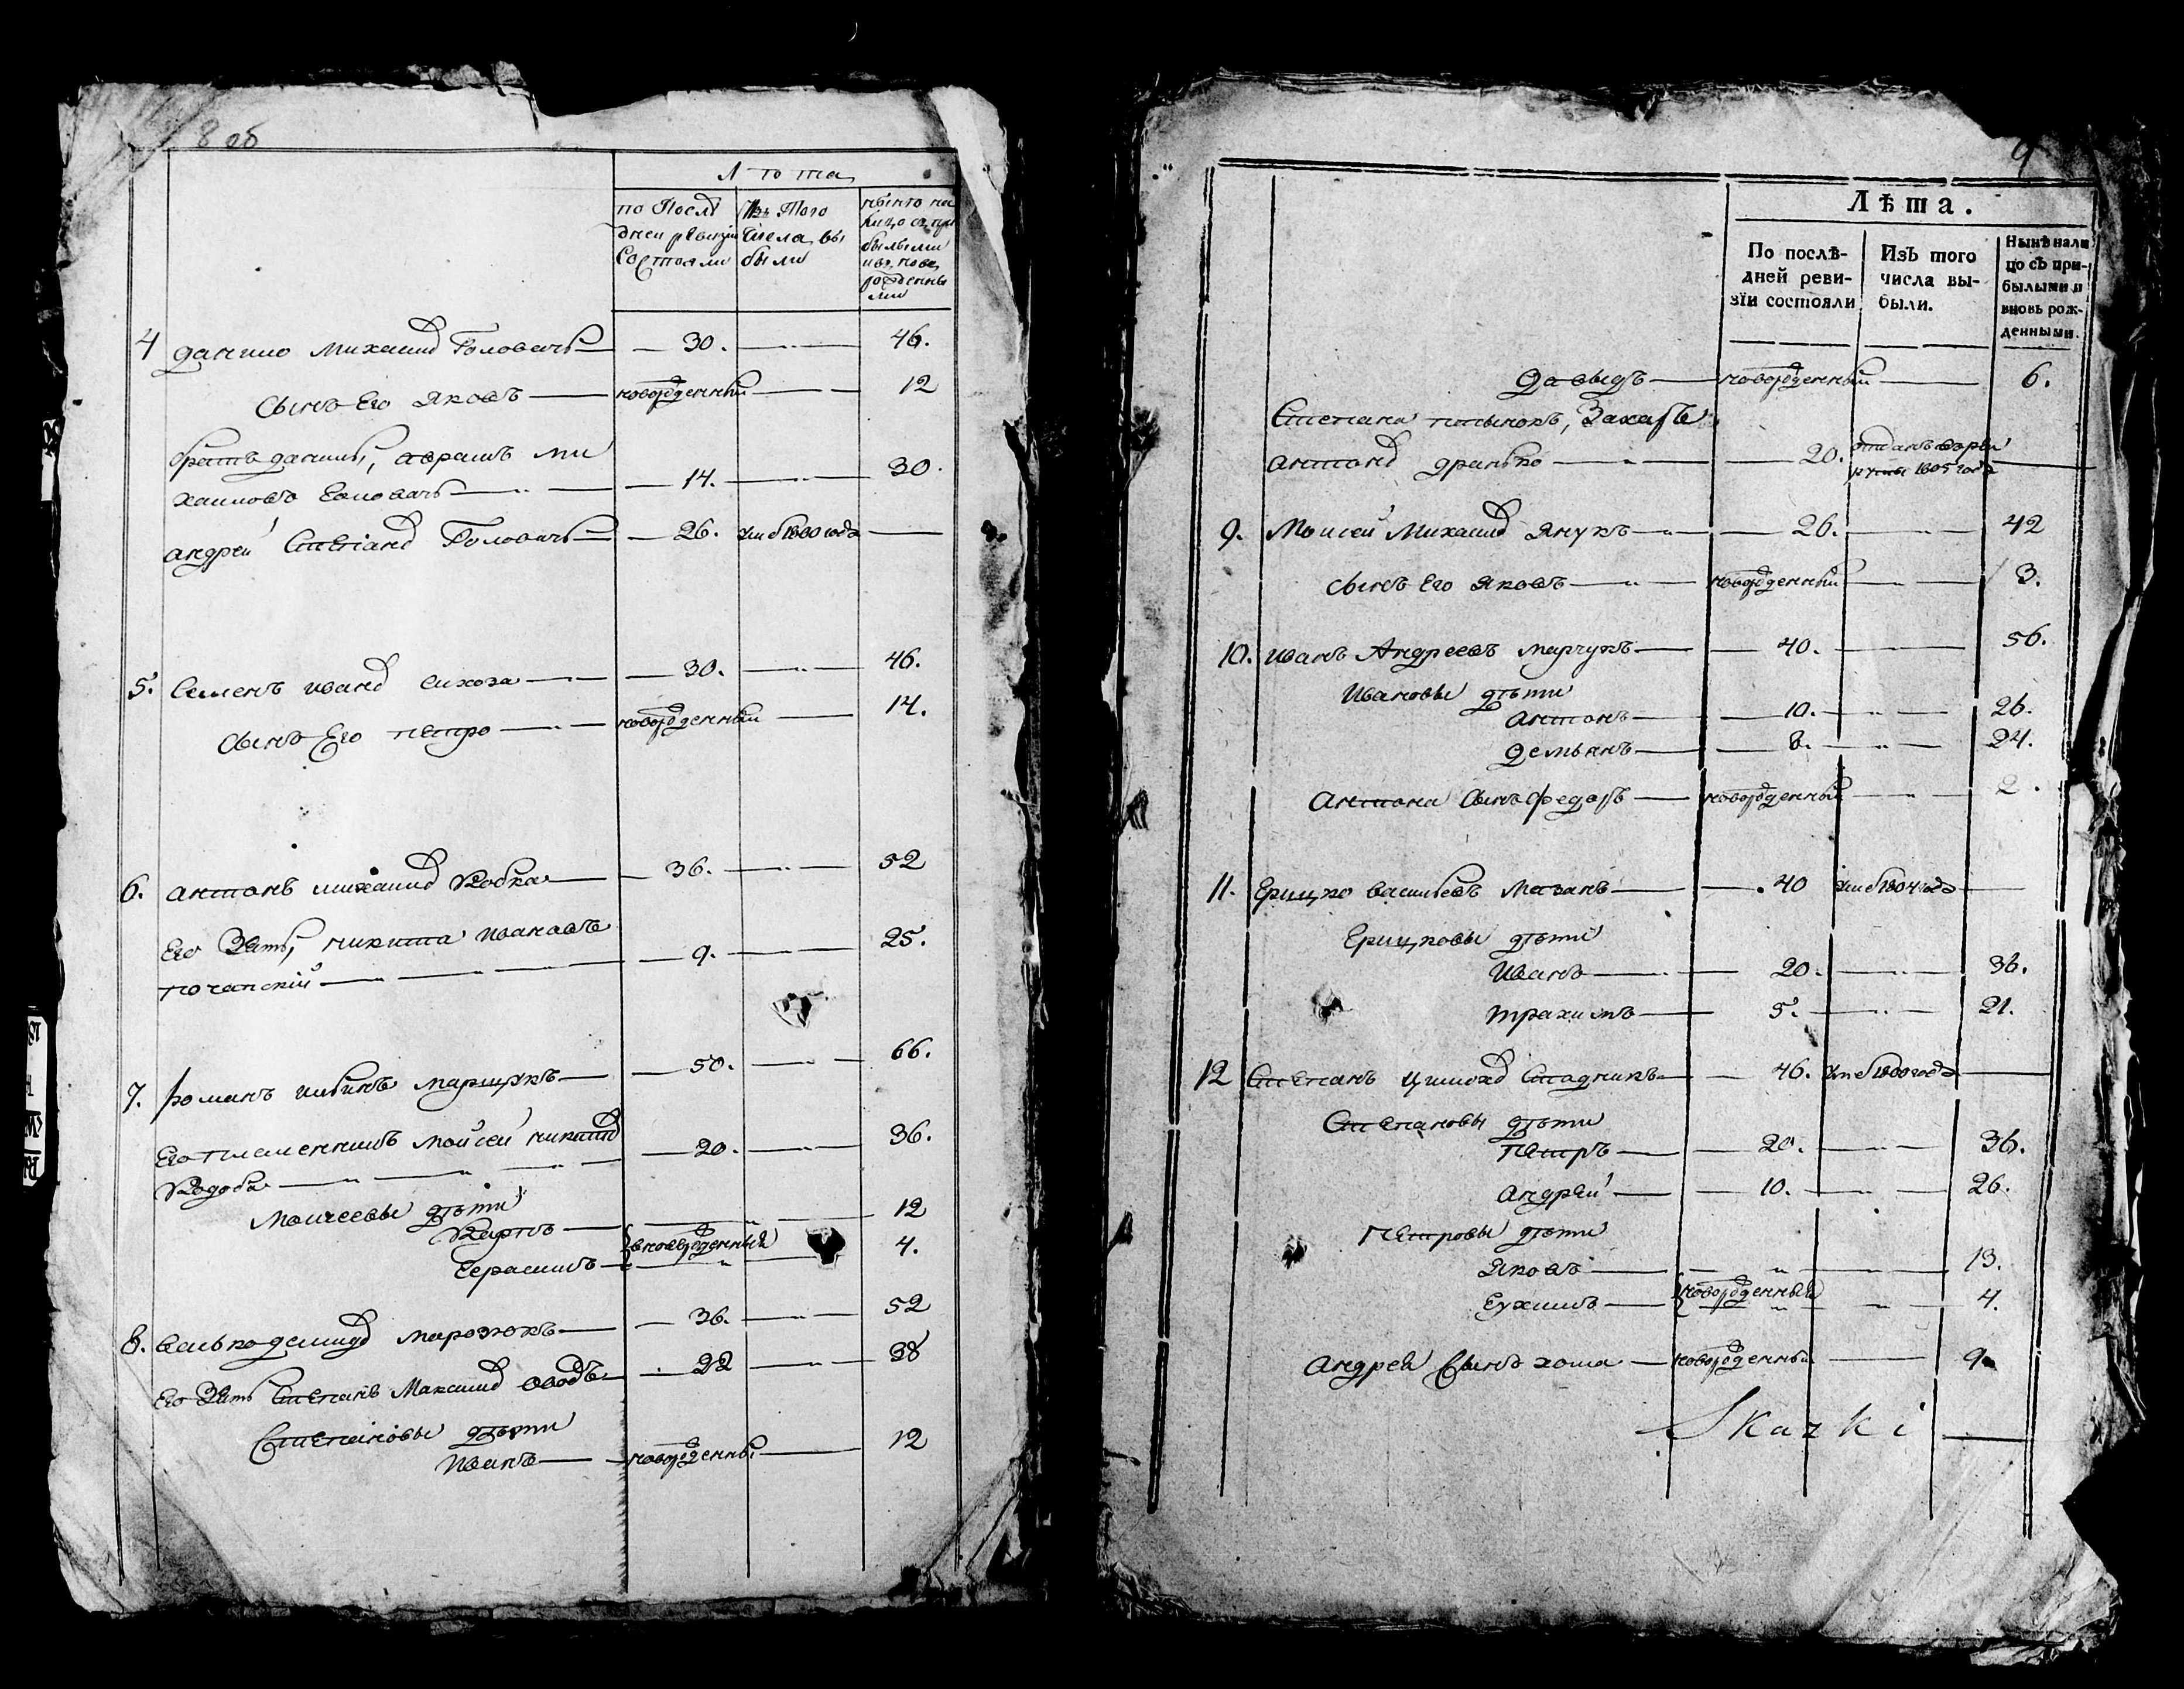 8 об
Лѣта
по Послѣ
дней ревизіи
Состояли
Изъ Того
Числа вы
были
нынѣ на
лицо съ при
былыми
и вновь
рожденны
ми
4 данило Михайлов Головачъ — 30. — 46.
Сынъ Его Яковъ — новорожденный — 12
братъ данилы, аврамъ ми
хайловъ Головачъ — 14. — 30.
андрей Степанов Головачъ — 26. Умеб 1800 года —
5. Семенъ иванов — 30. — 46.
Сынъ Его петро — новорожденный — 14.
6. антонъ михайлов — 36. — 52
Его Зять, никита ивановъ
— 9. — 25.
7. романъ — 50. — 66.
Его племенникъ Мойсей никитов
— 20. — 36.
Моисеевы дѣти
Карпъ — 12
вноворожденныя
Герасимъ — 4.
8. демидов — 36. — 52
Его Зять Степанъ Максимов — 22 — 38
Степановы дѣти
Иванъ — новорожденный — 12
9
Лѣта.
По послѣ-
дней реви-
зїи состояли
Изъ того
числа вы-
были.
Нынѣ нали
цо съ при-
былыми и
вновь рож-
денными.
Давыдъ — новорожденный — 6.
Степана Захаръ
антонов — 20. отданъ
1805 года —
9. Моисей Михайлов Янукъ — 26. — 42
Сынъ Его Яковъ — новорожденный — 3.
10. Иванъ Андреевъ марчукъ — 40. — 56.
Ивановы дѣти
антонъ — 10. — 26.
Демьянъ — 8. — 24.
Антона Сынъ Федоръ — новорожденный — 2.
11. Грицко васильевъ Мазанъ — 40 Умеб 1804 года —
Грицковы дѣти
Иванъ — 20. — 36.
трахимъ — 5. — 21.
12 Степанъ — 46. Умеб 1800 года —
Степановы дѣти
Петръ — 20. — 36.
андрей — 10. — 26.
Петровы дѣти
Яковъ — 13.
новорожденныя
Еухимъ — 4.
Андрея Сынъ хома — новорожденный — 9
Skazki